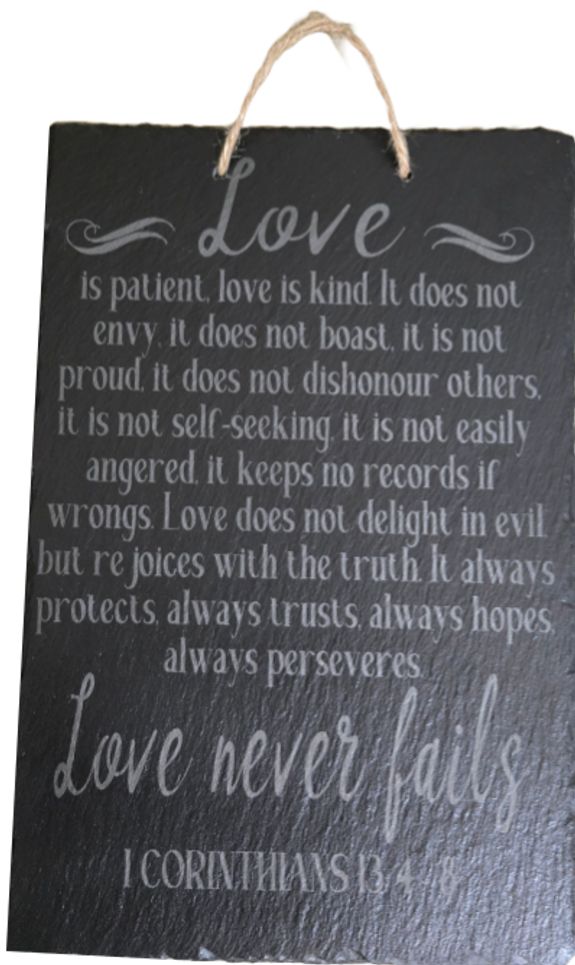 Love
is patient, love is kind. It does not
envy, it does not boast, it is not
proud, it does not dishonour others,
it is not self-seeking, it is not easily
angered, it keeps no records if
wrongs. Love does not delight in evil
but rejoices with the truth. It always
protects, always trusts, always hopes,
always perseveres.
Love never fails
1 CORINTHIANS 13 4-8